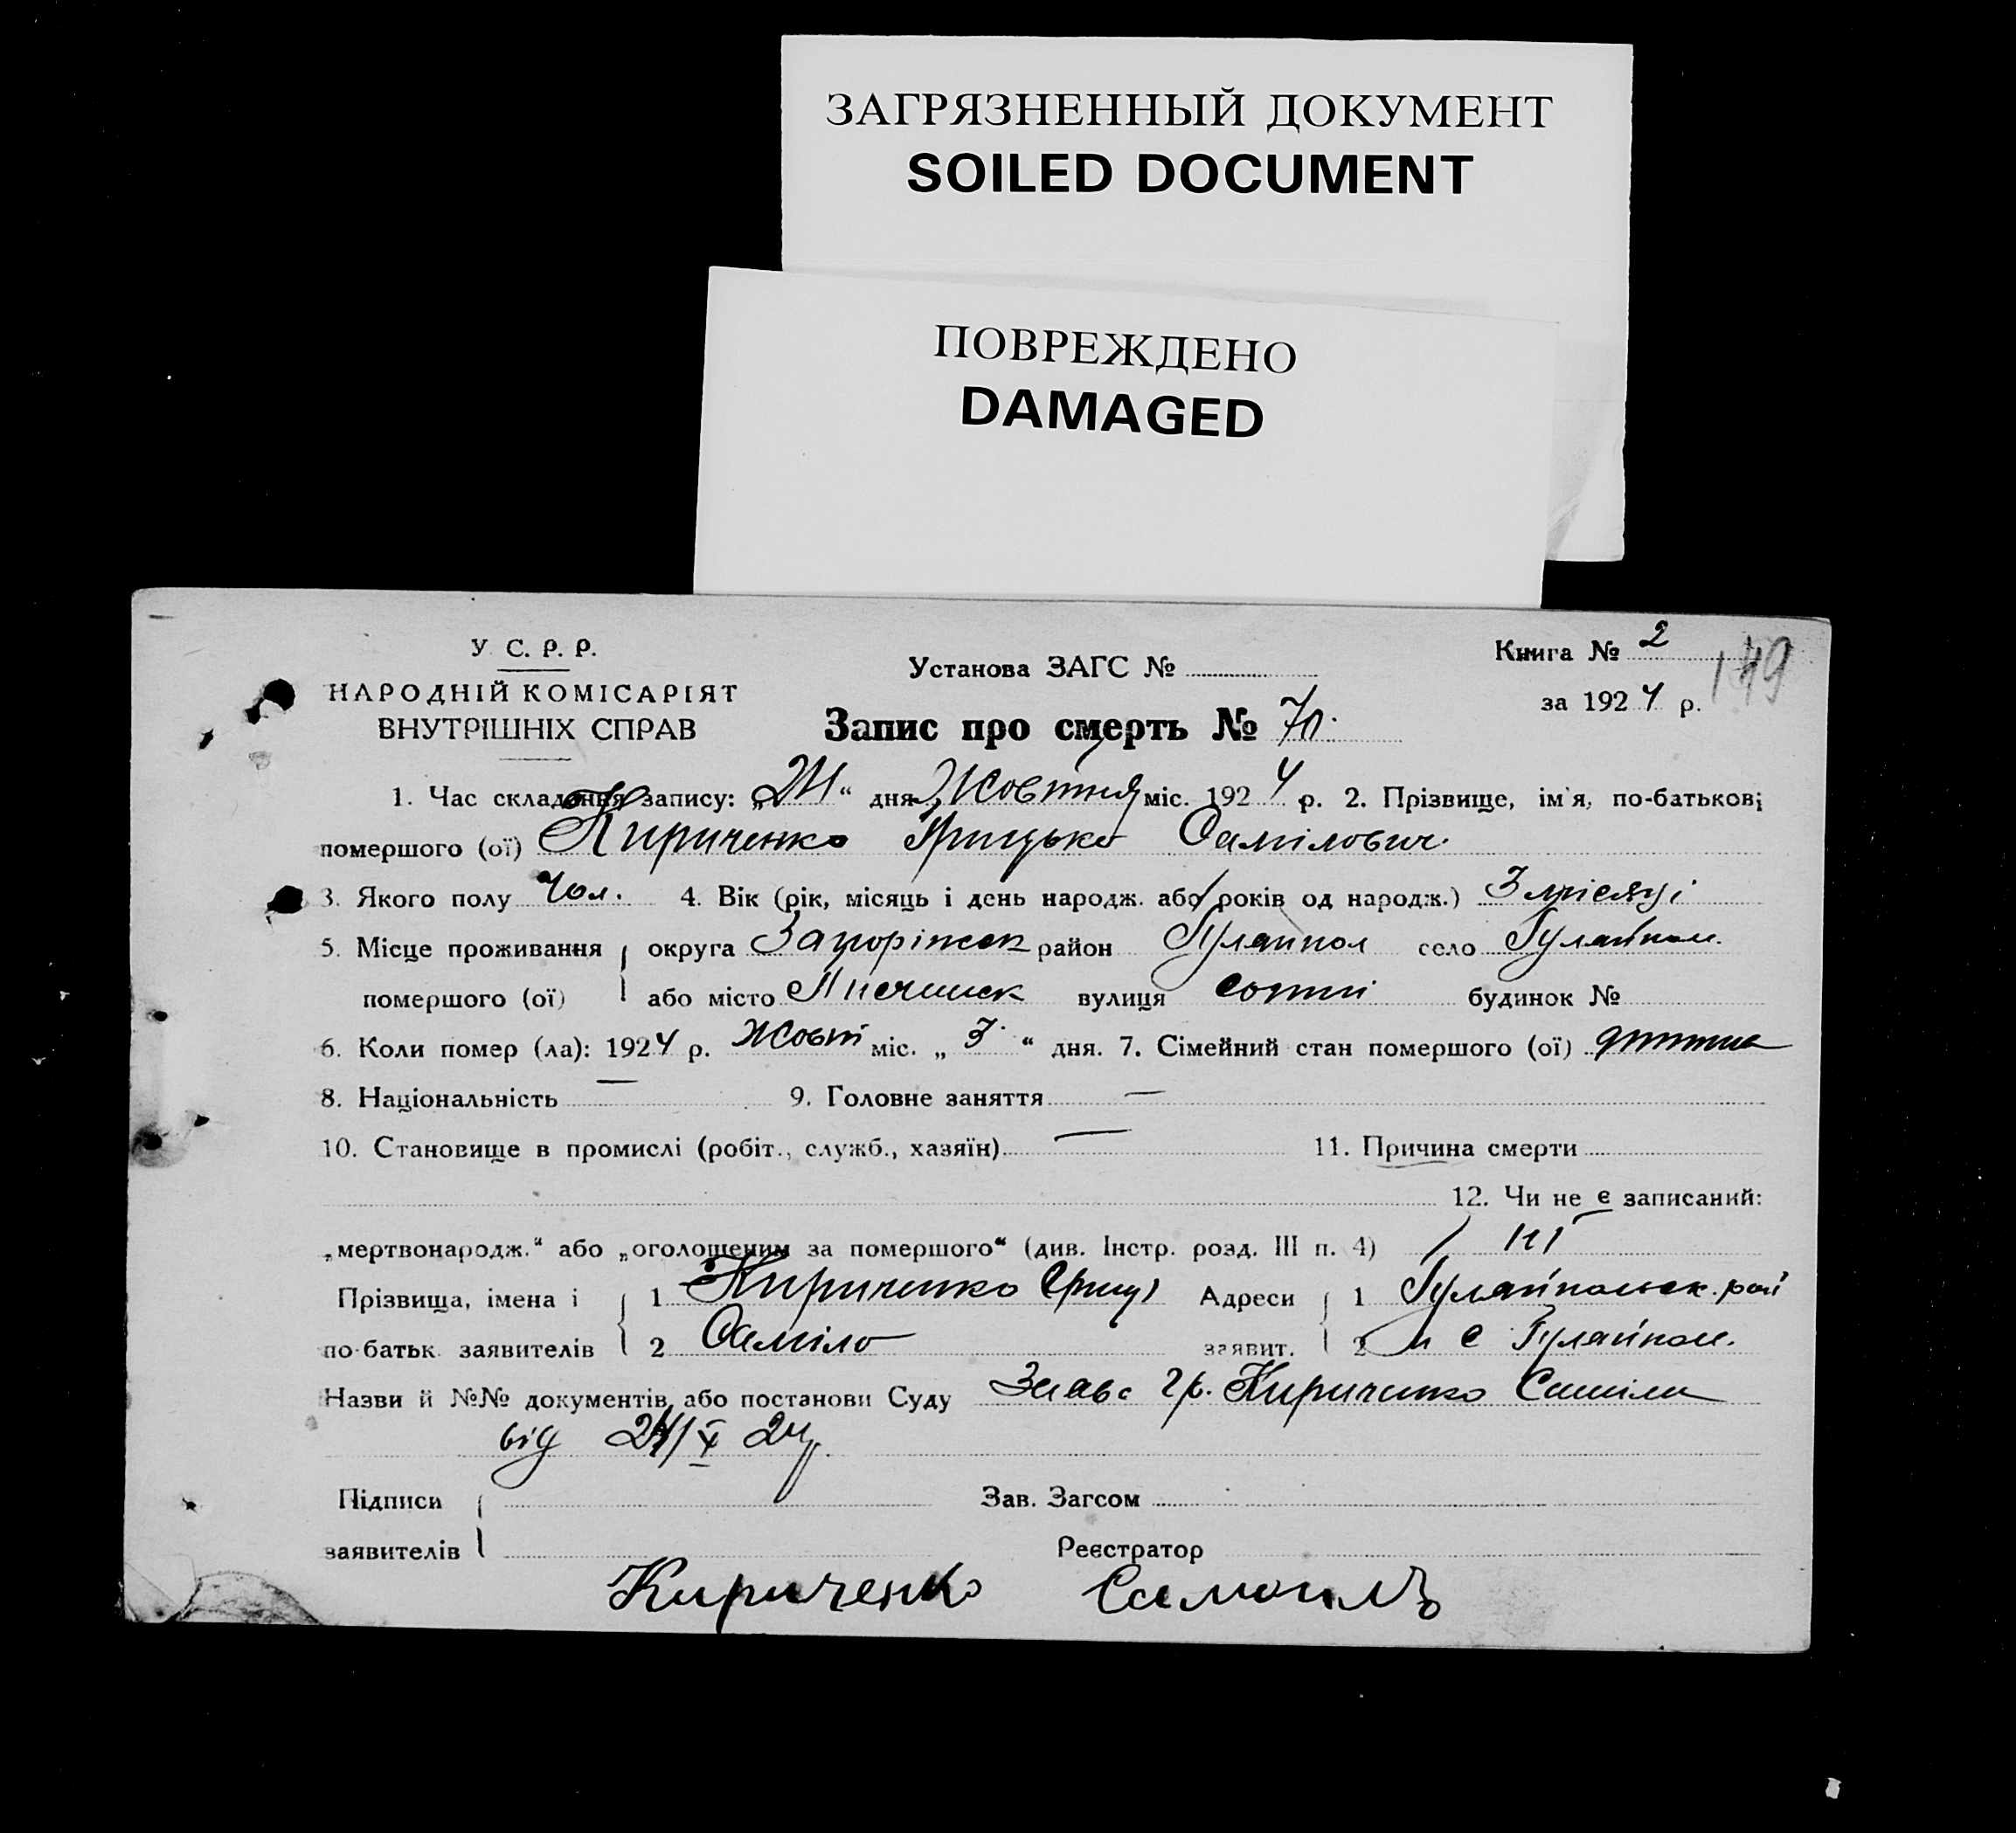 ЗАГРЯЗНЕННЫЙ ДОКУМЕНТ
SOILED DOCUMENT
ПОВРЕЖДЕНО
DAMAGED
У. С. Р. Р.
НАРОДНІЙ КОМІСАРІЯТ
ВНУТРІШНІХ СПРАВ
Установа ЗАГС №
Книга № 2
149
за 1924 р.
Запис про смерть № 70.
1. Час складення запису: „24“ дня Жовтня міс. 1924 р. 2. Прізвище, ім'я, по-батькові
помершого (ої) Кириченко Грицько Самілович.
3. Якого полу чол. 4. Вік (рік, місяць і день народж. або років од народж.) 3 місяці
5. Місце проживання округа Запоріжск район Гуляйпол село Гуляйпол.
помершого (ої) або місто вулиця сотні будинок №
6. Коли помер (ла): 1924 р. Жовт міс. „3“ дня. 7. Сімейний стан помершого (ої) дитина
8. Національність — 9. Головне заняття —
10. Становище в промислі (робіт., служб., хазяїн) — 11. Причина смерти
12. Чи не є записаний:
„мертвонародж.“ або „оголошеним за помершого“ (див. Інстр. розд. III п. 4) ні
Прізвища, імена і 1 Кириченко Адреси 1 Гуляйпольск. рай
по-батьк. заявителів 2 Саміло заявит. 2 с Гуляйпол.
Назви й №№ документів або постанови Суду Заява гр. Кириченко Саміла
від 24/X 24р.
Підписи Зав. Загсом
заявителів Реєстратор
Кириченко Самоилъ